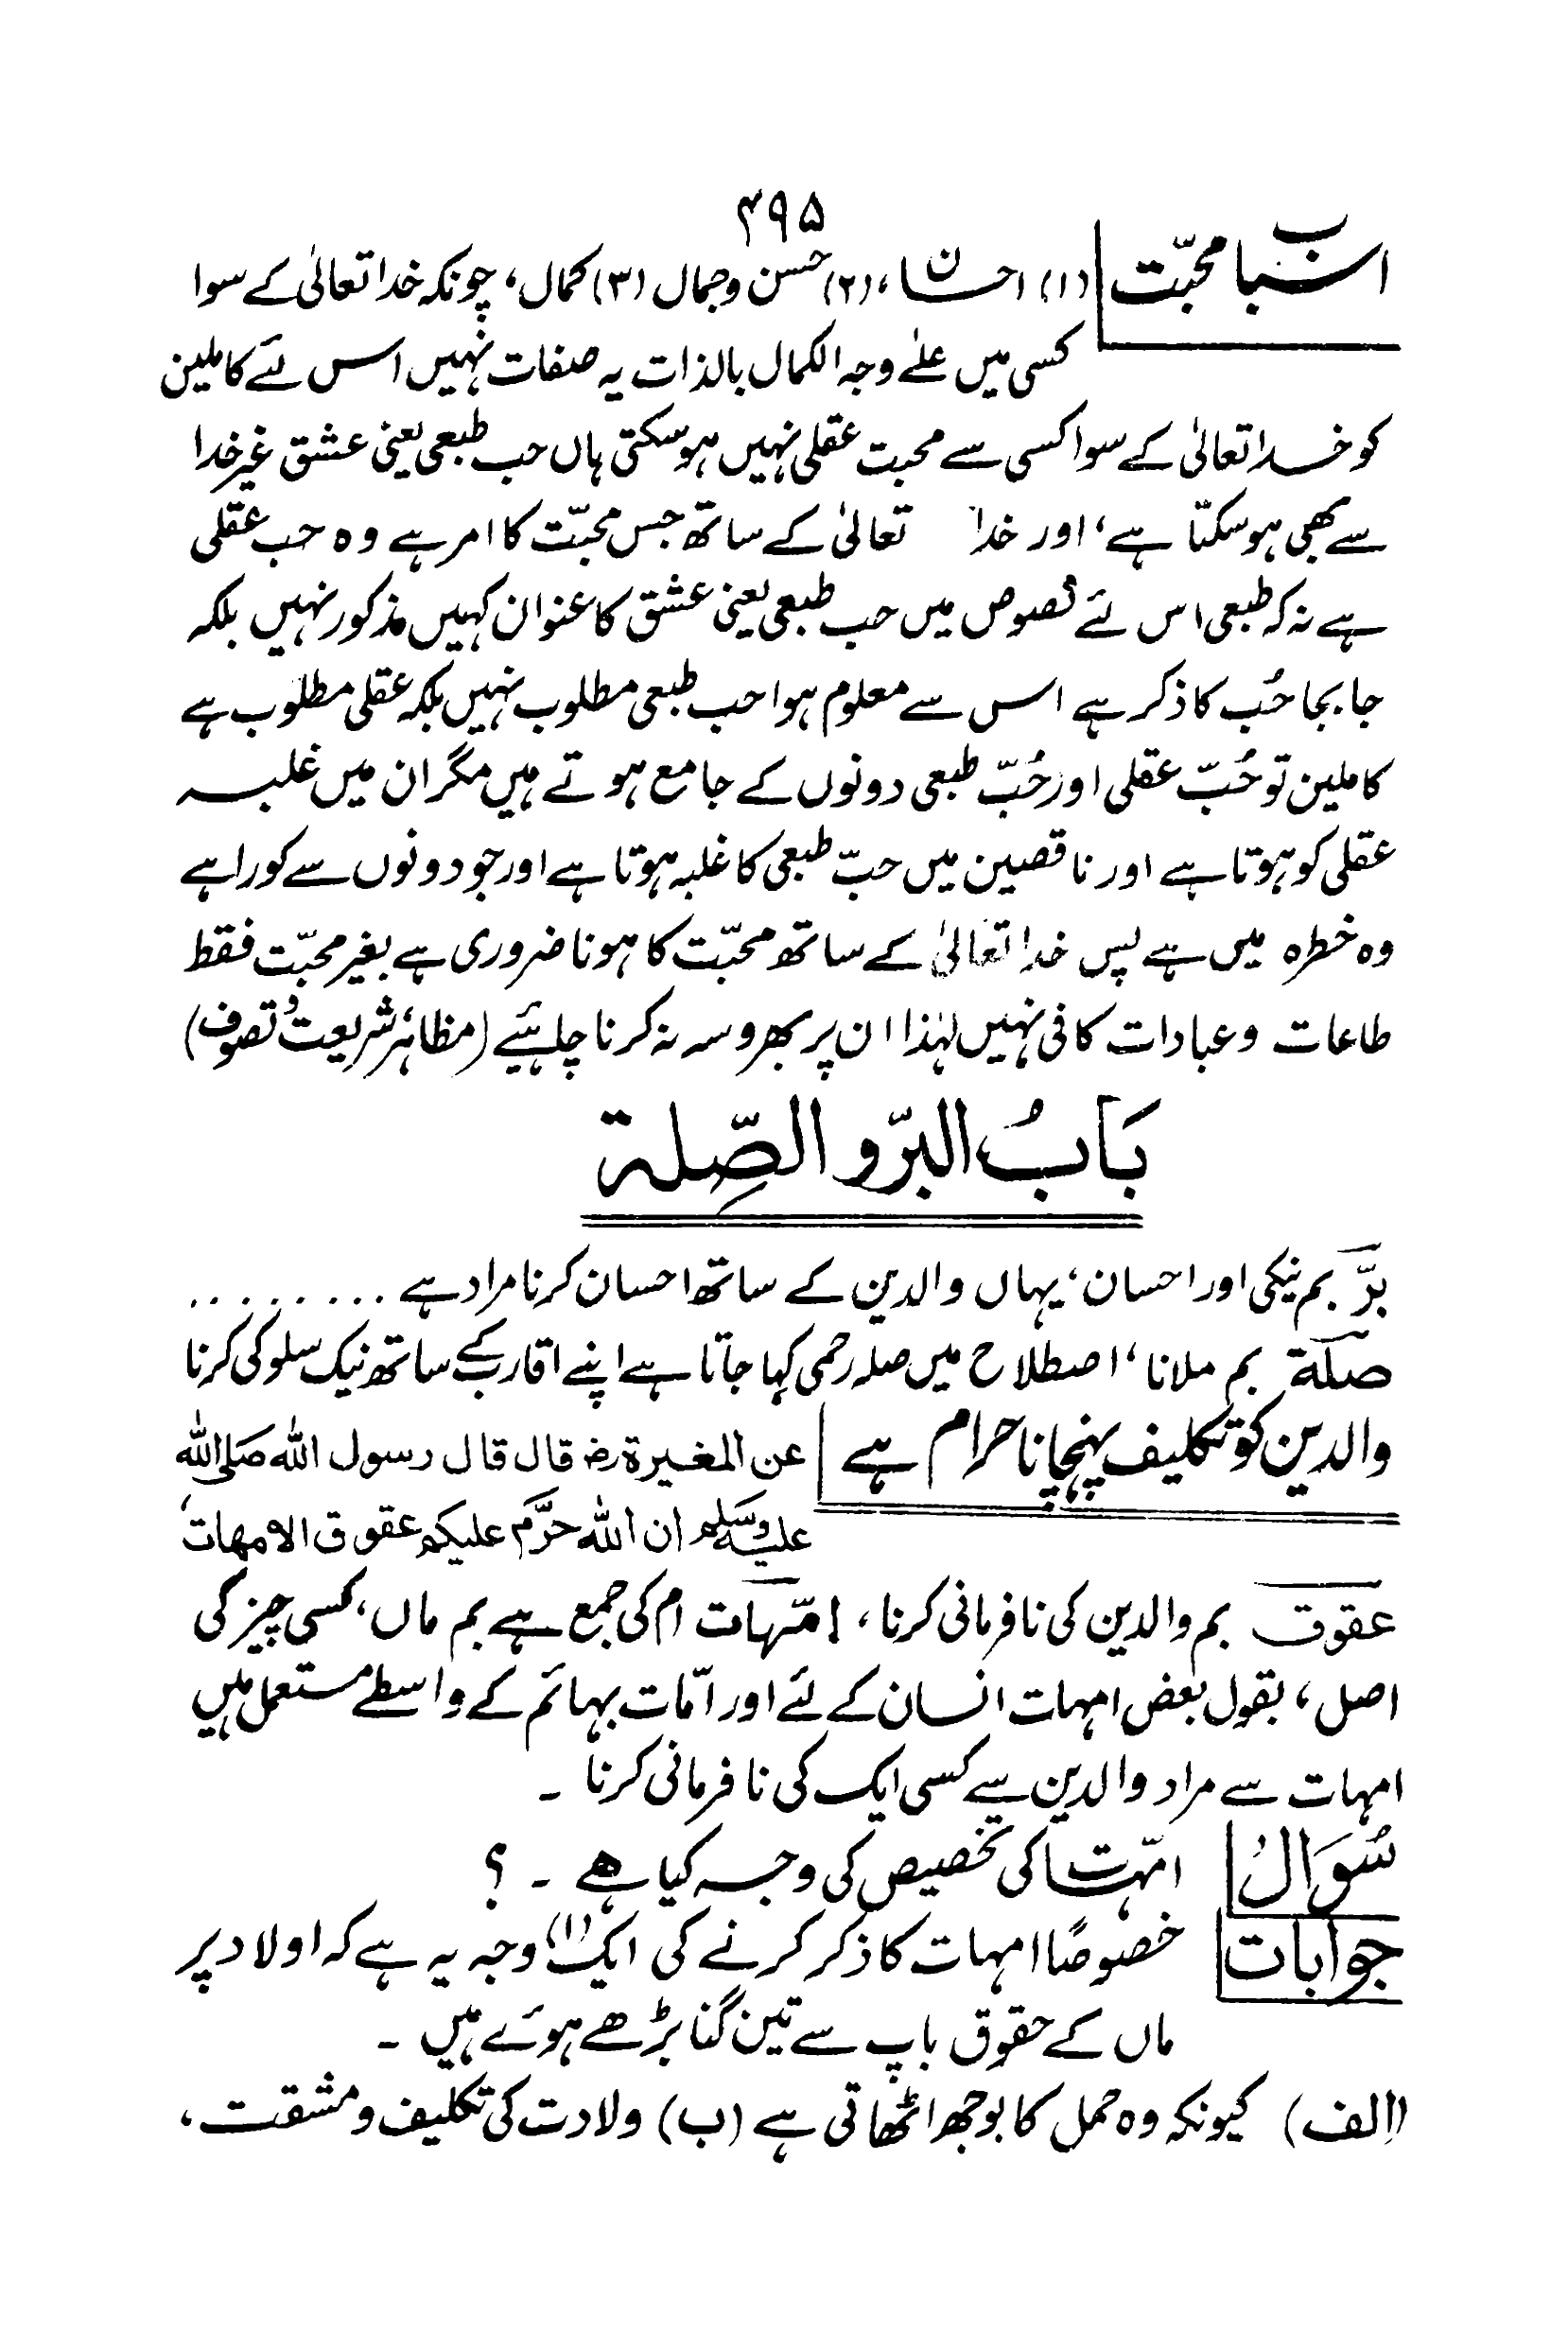 ۴۹۵
اسباب محبّت (۱) احسان، (۲) حسن وجمال (۳) کمال، چونکہ خدا تعالیٰ کے سوا
کسی میں علےٰ وجہ الکمال بالذات یہ صفات نہیں اس لئے کاملین
کو خدا تعالیٰ کے سوا کسی سے محبت عقلی نہیں ہو سکتی ہاں حب طبعی یعنی عشق غیر خدا
سے بھی ہو سکتا ہے، اور خدا تعالیٰ کے ساتھ جس محبّت کا امر ہے وہ حب عقلی
ہے نہ کہ طبعی اس لئے نصوص میں حب طبعی یعنی عشق کا عنوان کہیں مذکور نہیں بلکہ
جا بجا حُب کا ذکر ہے اس سے معلوم ہوا حب طبعی مطلوب نہیں بلکہ عقلی مطلوب ہے
کاملین تو حُبّ عقلی اور حُبّ طبعی دونوں کے جامع ہوتے ہیں مگر ان میں غلبہ
عقلی کو ہوتا ہے اور ناقصین میں حبّ طبعی کا غلبہ ہوتا ہے اور جو دونوں سے کورا ہے
وہ خطرہ میں ہے پس خدا تعالیٰ کے ساتھ محبّت کا ہونا ضروری ہے بغیر محبّت فقط
طاعات وعبادات کافی نہیں لہٰذا ان پر بھروسہ نہ کرنا چاہئیے (مظاہر شریعت و تصوف)
بَابُ البرّ و الصِّلۃ
برّ بم نیکی اور احسان، یہاں والدین کے ساتھ احسان کرنا مراد ہے .........
صلۃ بم ملانا، اصطلاح میں صلہ رحمی کہا جاتا ہے اپنے اقارب کے ساتھ نیک سلوکی کرنا
والدین کو تکلیف پہنچانا حرام ہے عن المغیرة رض قال قال رسول اللہ صَلی اللہ
علیہ وسَلم ان اللہ حرَّم علیکم عقوق الامهات
عقوق بم والدین کی نافرمانی کرنا، امّہات ام کی جمع ہے بم ماں، کسی چیز کی
اصل، بقول بعض امہات انسان کے لئے اور امّات بہائم کے واسطے مستعمل ہیں
امہات سے مراد والدین سے کسی ایک کی نافرمانی کرنا ۔
سُوَالُ امّہات کی تخصیص کی وجہ کیا ہے ۔ ؟
جوابات خصوصًا امہات کا ذکر کرنے کی ایک (۱) وجہ یہ ہے کہ اولاد پر
ماں کے حقوق باپ سے تین گنا بڑھے ہوئے ہیں ۔
(الف) کیونکہ وہ حمل کا بوجھ اٹھاتی ہے (ب) ولادت کی تکلیف و مشقت،